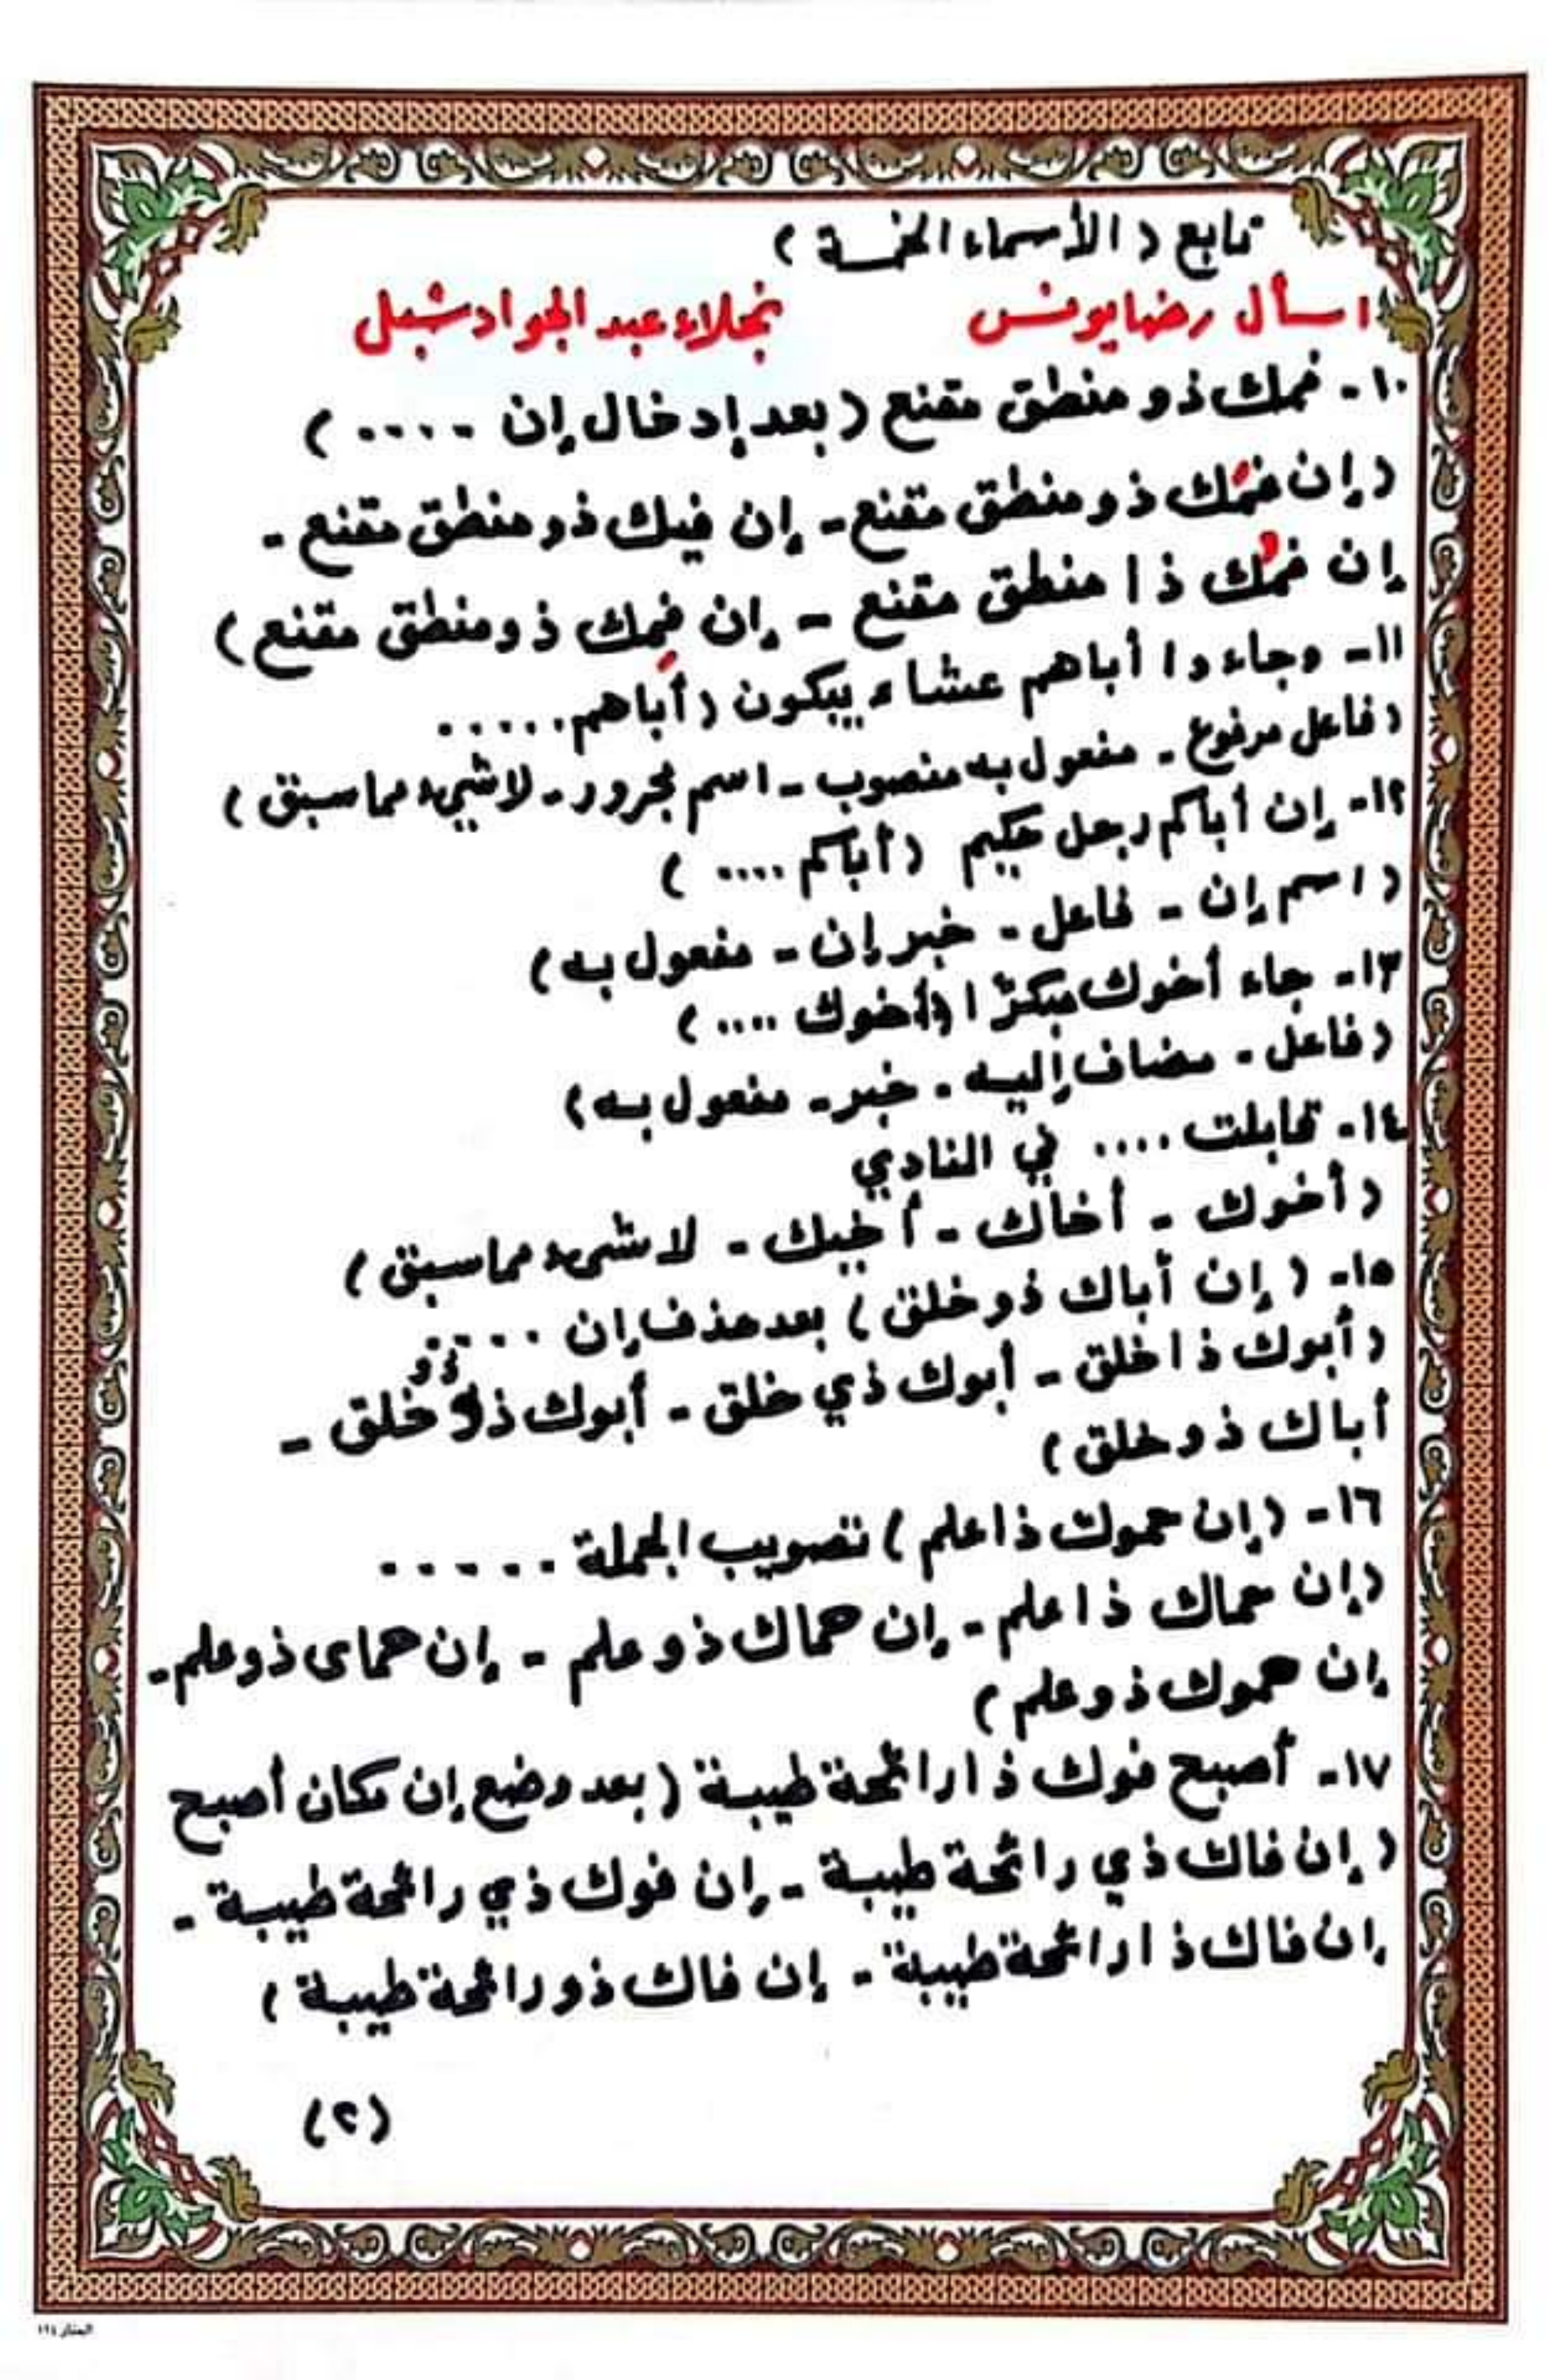 تابع (الأسماء الخمسة)
اسأل رضا يونس نجلاء عبد الجواد شبل
١٠- فمك ذو منطق مقنع (بعد إدخال إن .....)
(إن فمَك ذو منطق مقنع - إن فيك ذو منطق مقنع -
إن فمُك ذا منطق مقنع - إن فمِك ذو منطق مقنع)
١١- وجاءوا أباهم عشاء يبكون (أباهم .....
(فاعل مرفوع - مفعول به منصوب - اسم مجرور - لا شيء مما سبق)
١٢- إن أباكم رجل حكيم (أباكم ....)
(اسم إن - فاعل - خبر إن - مفعول به)
١٣- جاء أخوك مبكرًا (أخوك ....)
(فاعل - مضاف إليه - خبر - مفعول به)
١٤- قابلت .... في النادي
(أخوك - أخاك - أخيك - لا شيء مما سبق)
١٥- (إن أباك ذو خلق) بعد حذف إن .....
(أبوك ذا خلق - أبوك ذي خلق - أبوك ذو خلق -
أباك ذو خلق)
١٦- (إن حموك ذا علم) تصويب الجملة .....
(إن حماك ذا علم - إن حماك ذو علم - إن حماى ذو علم -
إن حموك ذو علم)
١٧- أصبح فوك ذا رائحة طيبة (بعد وضع إن مكان أصبح
(إن فاك ذي رائحة طيبة - إن فوك ذي رائحة طيبة -
إن فاك ذا رائحة طيبة - إن فاك ذو رائحة طيبة)
(٢)